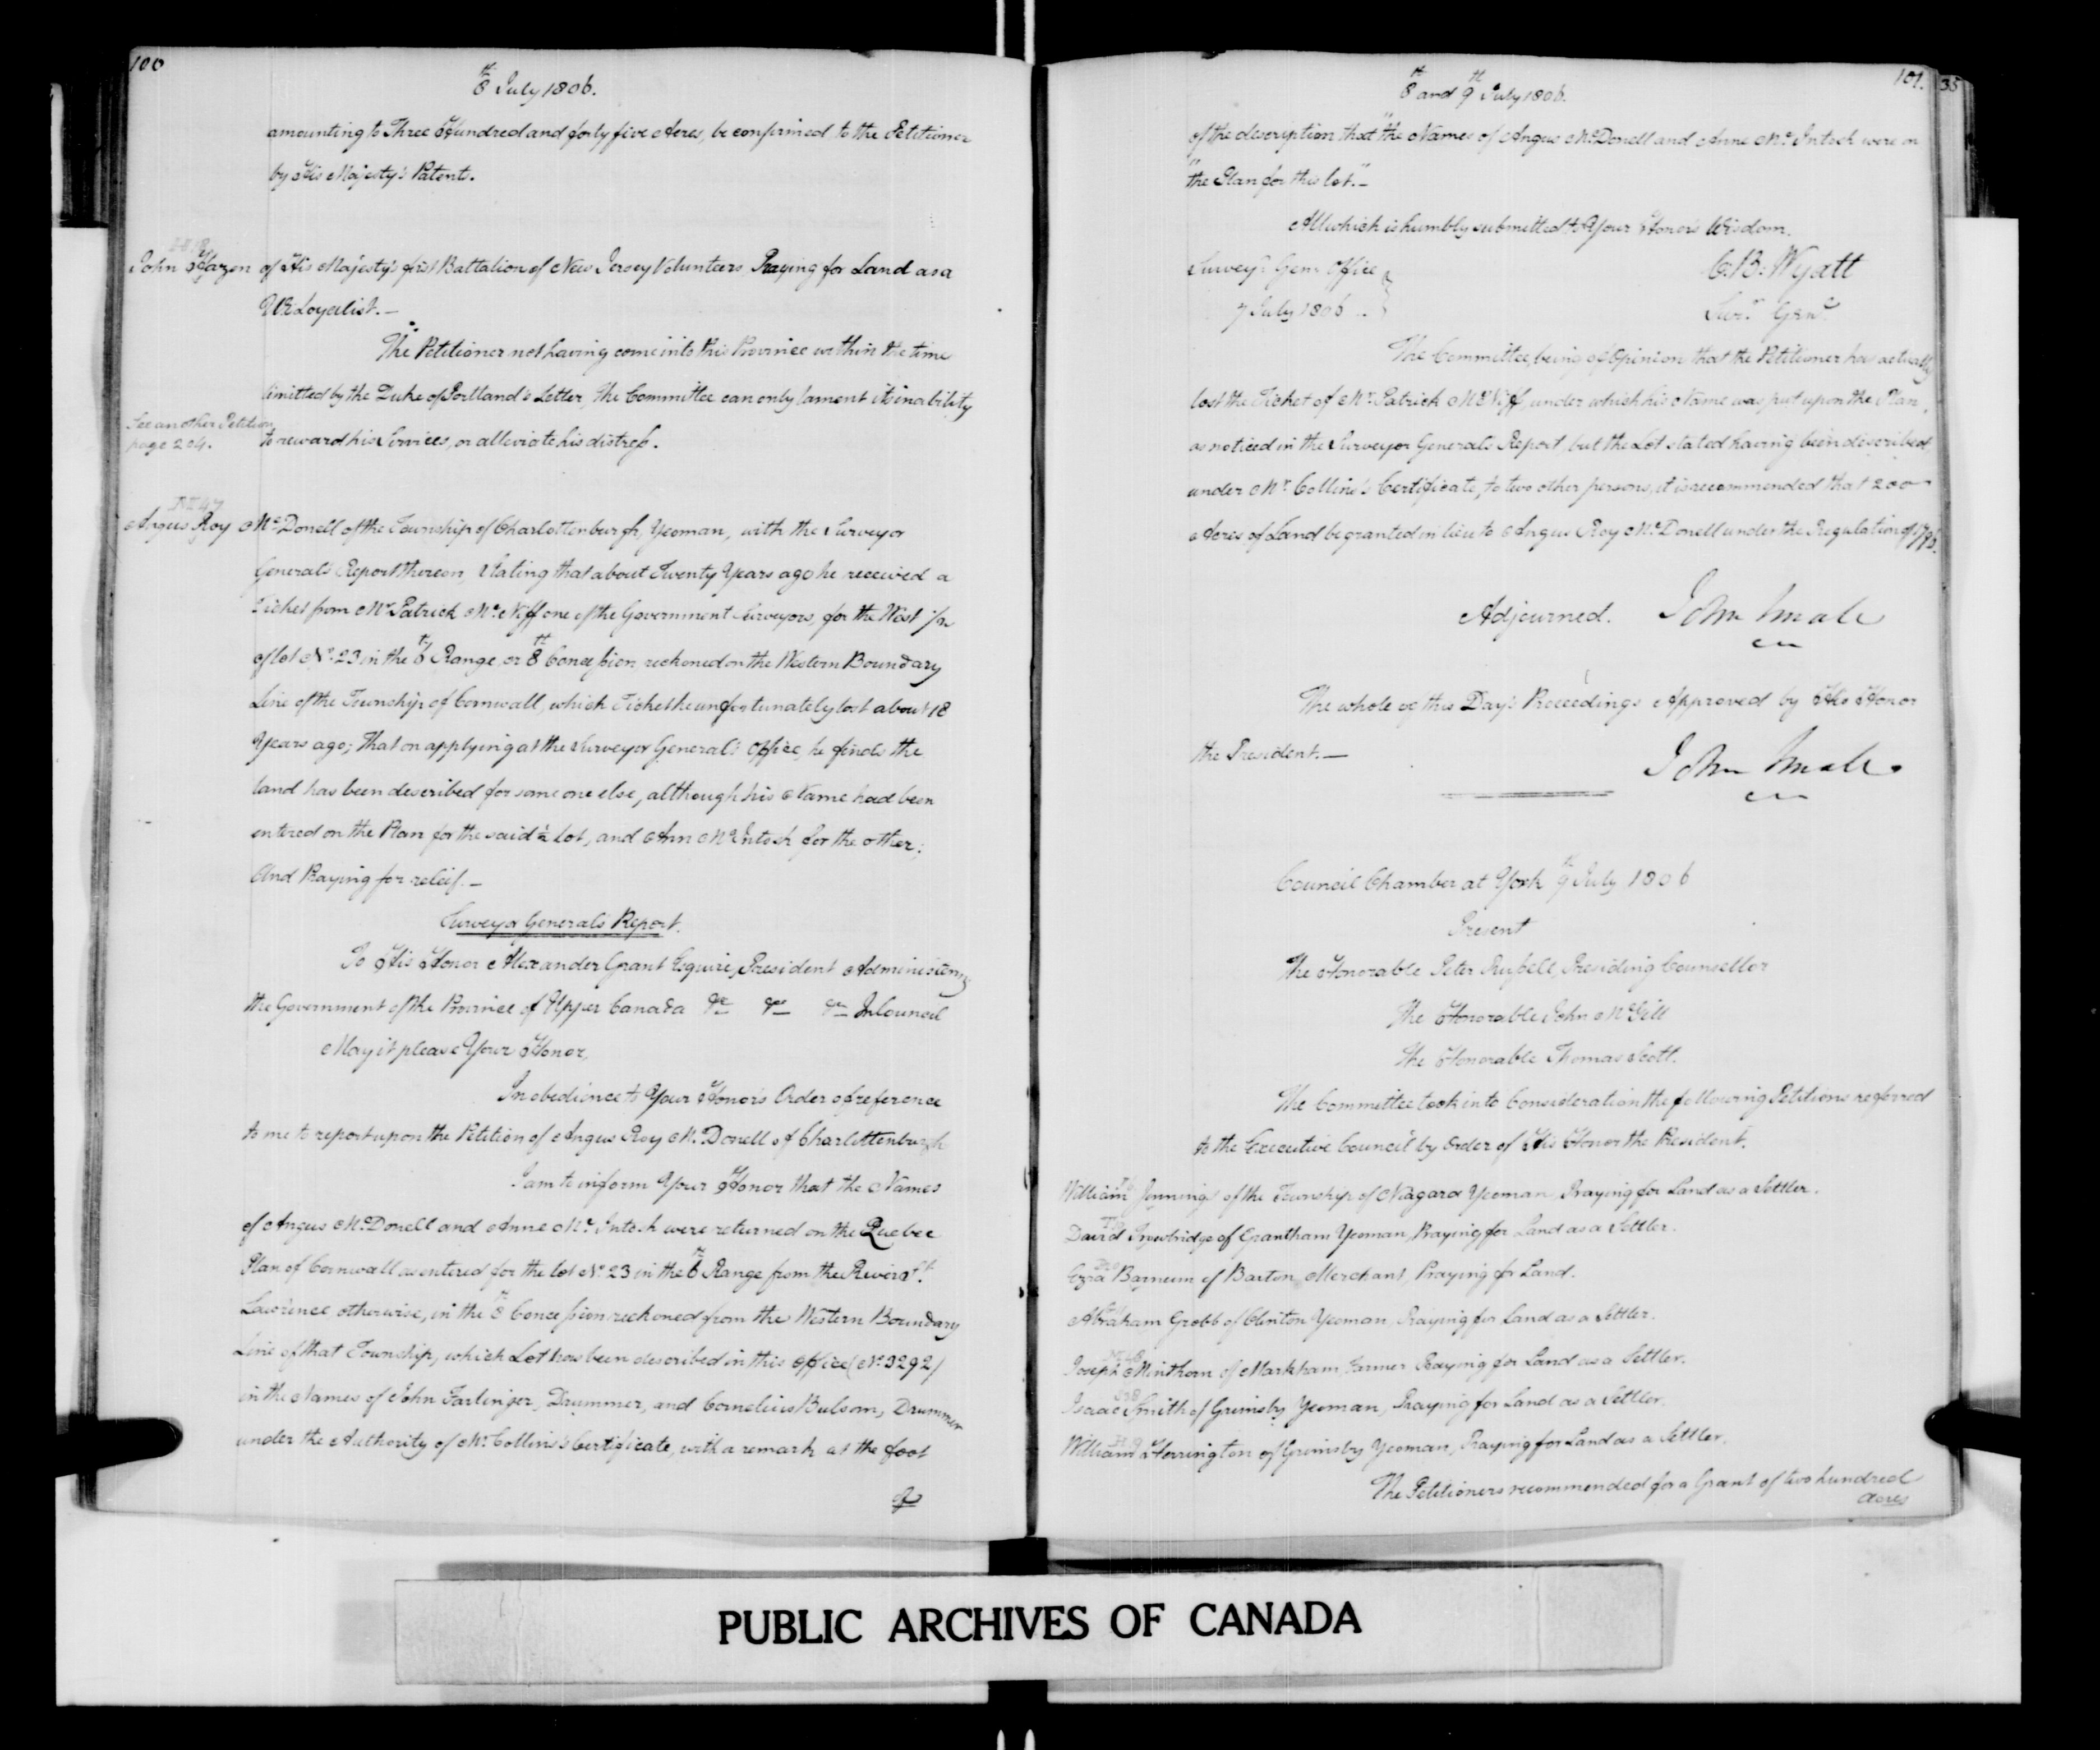 100
8th July 1806.
amounting to Three Hundred and forty five Acres, be confirmed to the Petitioner
by His Majesty's Patent.
John Hazen of His Majesty's first Battalion of New Jersey Volunteers. Praying for Land as a
UE Loyalist.—
The Petitioner not having come into this Province within the time
limitted by the Duke of Portland's Letter, the Committee can only lament its inability
See another Petition
page 204.
to reward his Services, or alleviate his distress.
Angus Roy McDonell of the Township of Charlottenburgh, Yeoman, with the Surveyor
General's Report thereon, Stating that about Twenty Years ago he received a
Ticket from Mr. Patrick McNiff one of the Government Surveyors, for the West 1/2
of lot No. 23 in the 6th Range, or 8th Concession reckoned on the Western Boundary
Line of the Township of Cornwall, which Ticket he unfortunately lost about 18
Years ago; That on applying at the Surveyor General's Office, he finds the
land has been described for some one else, although his Name had been
entered on the Plan for the said 1/2 lot, and Ann McIntosh for the other;
And Praying for releif.—
Surveyor General's Report.
To His Honor Alexander Grant Esquire, President Administering
the Government of the Province of Upper Canada &c &c &c In Council
May it please Your Honor,
In obedience to Your Honor's Order of reference
to me to report upon the Petition of Angus Roy McDonell of Charlottenburgh
I am to inform Your Honor that the Names
of Angus McDonell and Anne McIntosh were returned on the Quebec
Plan of Cornwall as entered for the lot No. 23 in the 6th Range from the River St.
Lawrence otherwise, in the 8th Concession reckoned from the Western Boundary
Line of that Township, which Lot has been described in this Office (No. 3292)
in the Names of John Farlinger, Drummer, and Cornelius Bulson, Drummer
under the Authority of Mr. Collins's Certificate, with a remark at the foot
of
8th and 9th July 1806.
101.
35
of the description that "the Names of Angus McDonell and Anne McIntosh were on
"the Plan for this lot."—
All which is humbly submitted to Your Honor's Wisdom.
Survey.r Gen. Office
C.B. Wyatt
7 July 1806..
Sur.r Gen.l
The Committee being of Opinion that the Petitioner has actually
lost the Ticket of Mr. Patrick McNiff, under which his Name was put upon the Plan,
as noticed in the Surveyor General's Report, but the Lot stated having been described
under Mr. Collins's Certificate, to two other persons, it is recommended that 200
Acres of Land be granted in lieu to Angus Roy McDonell under the Regulation of 1796.
Adjourned. John Small
The whole of this Day's Proceedings Approved by His Honor
the President.—
John Small
Council Chamber at York 9th July 1806
Present
The Honorable Peter Russell, Presiding Councellor
The Honorable John McGill
The Honorable Thomas Scott.
The Committee took into Consideration the following Petitions referred
to the Executive Council by Order of His Honor the President.
William Jennings of the Township of Niagara Yeoman, Praying for Land as a Settler.
David Trowbridge of Grantham Yeoman, Praying for Land as a Settler.
Ezra Barnum of Barton, Merchant, Praying for Land.
Abraham Grobb of Clinton Yeoman, Praying for Land as a Settler.
Joseph Minthorn of Markham Farmer Praying for Land as a Settler.
Isaac Smith of Grimsby Yeoman, Praying for Land as a Settler.
William Herrington of Grimsby Yeoman, Praying for Land as a Settler.
The Petitioners recommended for a Grant of two hundred
acres
PUBLIC ARCHIVES OF CANADA